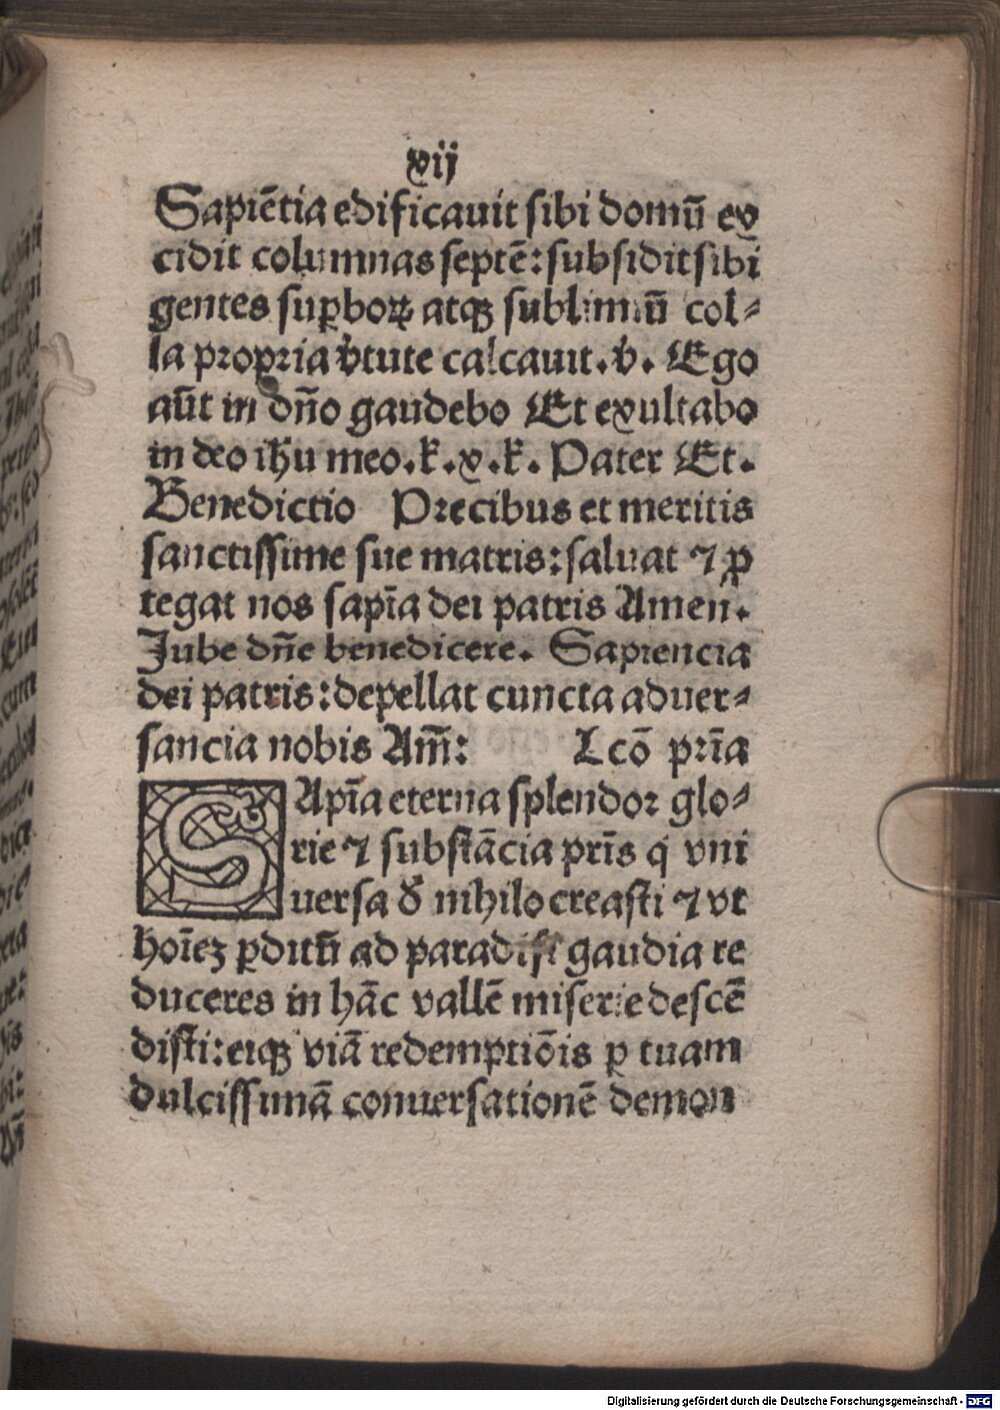 xij
Sapiētia edificauit sibi domū ex
cidit columnas septē: subsidit sibi
gentes sup̱boꝝ atqꝫ sublimiū col⸗
la propria v̓tute calcauit. v̓. Ego
aūt in dn̄o gaudebo Et exultabo
in deo ihu meo. k̓. x. k̓. Pater Et.
Benedictio Precibus et meritis
sanctissime sue matris: saluat ⁊ ꝓ
tegat nos sapīa dei patris Amen.
Jube dn̄e benedicere. Sapiencia
dei patris: depellat cuncta aduer⸗
sancia nobis Am̄: Lcō prīa
SApīa eterna splendor glo⸗
rie ⁊ substācia prīs q̓ vni
uersa d̓ nihilo creasti ⁊ vt
hoīeꝫ ꝑditū ad paradisi gaudia re
duceres in hāc vallē miserie descē
disti: eiqꝫ viā redemptiōis ꝑ tuam
dulcissimā conuersationē demon
Digitalisierung gefördert durch die Deutsche Forschungsgemeinschaft - DFG